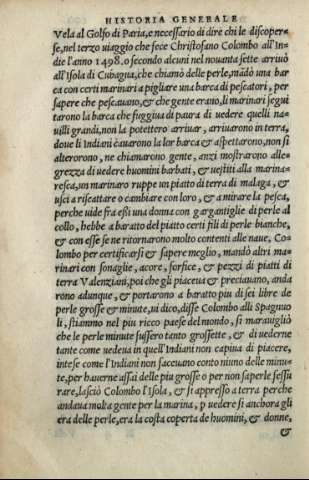 HISTORIA GENERALE
Vela al Golfo di Paria, e necessario di dire chi le discoper-
se, nel terzo uiaggio che fece Christofano Colombo all'In-
die l'anno 1498. o secondo alcuni nel nouanta sette arriuò
all'Isola di Cubagua, che chiamò delle perle, mādò una bar
ca con certi marinari a pigliare una barca di pescatori, per
sapere che pescauano, & che gente erano, li marinari segui
tarono la barca che fuggiua di paura di ueder quelli na-
uilli grandi, non la potettero arriuar, arriuarono in terra,
doue li Indiani cauarono la lor barca & aspettarono, non si
alterorono, ne chiamarono gente, anzi mostrarono alle-
grezza di uedere huomini barbati, & uestiti alla marina-
resca, un marinaro ruppe un piatto di terra di malaga, &
usci a riscattare o cambiare con loro, & a mirare la pesca,
perche uide fra eßi una donna con gargantiglie di perle al
collo, hebbe a baratto del piatto certi fili di perle bianche,
& con esse se ne ritornarono molto contenti alle naue, Co-
lombo per certificarsi & sapere meglio, mandò altri ma-
rinari con sonaglie, acore, forfice, & pezzi di piatti di
terra Valenziani, poi che gli piaceua & preciauano, anda
rono adunque, & portarono a baratto piu di sei libre de
perle grosse & minute, ui dico, disse Colombo alli Spagnuo
li, stiammo nel piu ricco paese del mondo, si marauigliò
che le perle minute fussero tanto grossette, & di uederne
tante come uedeua in quell'Indiani non capiua di piacere,
intese come l'Indiani non faceuano conto niuno delle minu-
te, per hauerne assai delle piu grosse o per non saperle fessu
rare, lasciò Colombo l'Isola, & si appresso a terra perche
andaua molta gente per la marina, p uedere si anchora gli
era delle perle, era la costa coperta de huomini, & donne,
&